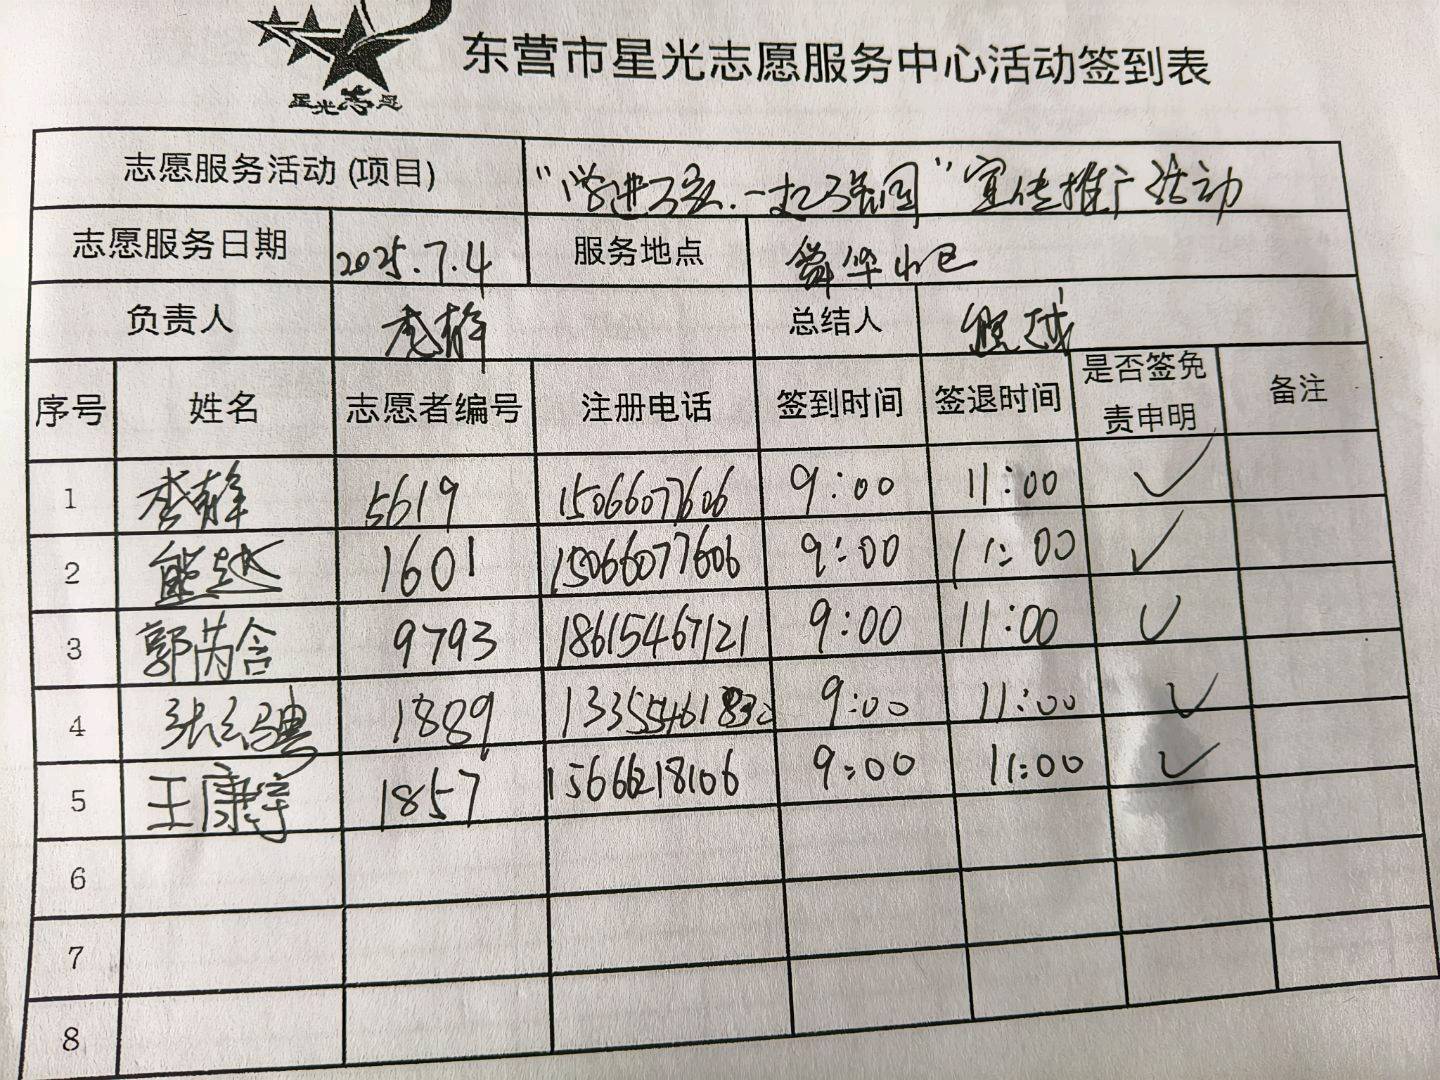 星光志愿
东营市星光志愿服务中心活动签到表
志愿服务活动(项目) “学进万家.一起强国”宣传推广活动
志愿服务日期 2025.7.4 服务地点 舜华小区
负责人 李静 总结人 熊越
序号 姓名 志愿者编号 注册电话 签到时间 签退时间 是否签免责申明 备注
1 李静 5619 15066077606 9:00 11:00 ✓
2 熊越 1601 15066077606 9:00 11:00 ✓
3 郭芮含 9793 18615467121 9:00 11:00 ✓
4 张 骋 1889 9:00 11:00 ✓
5 王康 1857 15666218106 9:00 11:00 ✓
6
7
8